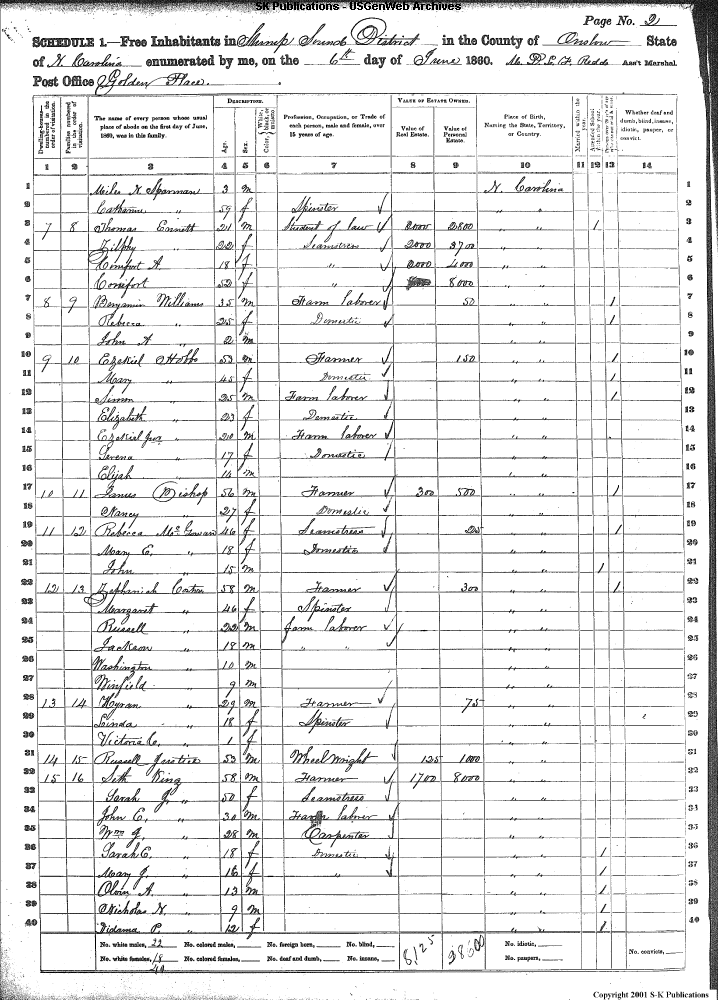 S-K Publications - USGenWeb Archives
Page No. 2
SCHEDULE 1.—Free Inhabitants in Stump Sound District in the County of Onslow State
of N Carolina enumerated by me, on the 6th day of June 1860. Ass't Marshal
Post Office Golden Place.
Dwelling-houses—numbered in the order of visitation.
Families numbered in the order of visitation.
The name of every person whose usual place of abode on the first day of June, 1860, was in this family.
DESCRIPTION.
Age.
Sex.
Color, White, black, or mulatto.
Profession, Occupation, or Trade of each person, male and female, over 15 years of age.
VALUE OF ESTATE OWNED.
Value of Real Estate.
Value of Personal Estate.
Place of Birth, Naming the State, Territory, or Country.
Married within the year.
Attended School within the year.
Whether deaf and dumb, blind, insane, idiotic, pauper, or convict.
1 2 3 4 5 6 7 8 9 10 11 12 13 14
1 Miles N. Sparman 3 m N. Carolina 1
2 Catharine " 59 f Spinster " " 2
3 7 8 Thomas Ennett 21 m Student of law 2000 2800 " " / 3
4 Zilphy " 22 f Seamstress 2000 3700 " " 4
5 Comfort A. " 18 f " 2000 4000 " " 5
6 Comfort " 52 f " 8000 " " 6
7 8 9 Benjamin Williams 35 m Farm laborer 50 " " / 7
8 Rebecca " 25 f Domestic " " / 8
9 John A " 2 m " " 9
10 9 10 Ezekiel Hobbs 53 m Farmer 150 " " / 10
11 Mary " 45 f Domestic " " / 11
12 Simon " 25 m Farm laborer " " / 12
13 Elizabeth " 23 f Domestic " " 13
14 Ezekiel Junr " 20 m Farm laborer " " 14
15 Serena " 17 f Domestic " " 15
16 Elijah " 14 m " " 16
17 10 11 James Bishop 56 m Farmer 300 500 " " / 17
18 Nancy " 27 f Domestic " " 18
19 11 12 Rebecca McGowan 46 f Seamstress 25 " " / 19
20 Mary E. " 18 f Domestic " " 20
21 John " 15 m " " / 21
22 12 13 Zephaniah Eaton 58 m Farmer 300 " " / 22
23 Margaret " 46 f Spinster " " 23
24 Russell " 22 m farm laborer " " 24
25 Jackson " 18 m " " " " 25
26 Washington " 10 m " " 26
27 Winfield " 9 m " " 27
28 13 14 Hyram " 29 m Farmer 75 " " 28
29 Linda " 18 f Spinster " " 29
30 Victoria C. " 1 f " " 30
31 14 15 Russell 53 m Wheel wright 125 1000 " " 31
32 15 16 Seth King 58 m Farmer 1700 8000 " " 32
33 Sarah J. " 50 f Seamstress " " 33
34 John E. " 30 m Farm laborer " " 34
35 Wm J. " 28 m Carpenter " " 35
36 Sarah E. " 18 f Domestic " " / 36
37 Mary J. " 16 f " " " / 37
38 " 13 m " " / 38
39 Nicholas N. " 9 m " " / 39
40 P. " 12 f " " / 40
No. white males, 22 No. colored males, No. foreign born, No. blind, 8,125 28600 No. idiotic, No. convicts,
No. white females, 18 No. colored females, No. deaf and dumb, No. insane, No. paupers,
40
Copyright 2001 S-K Publications